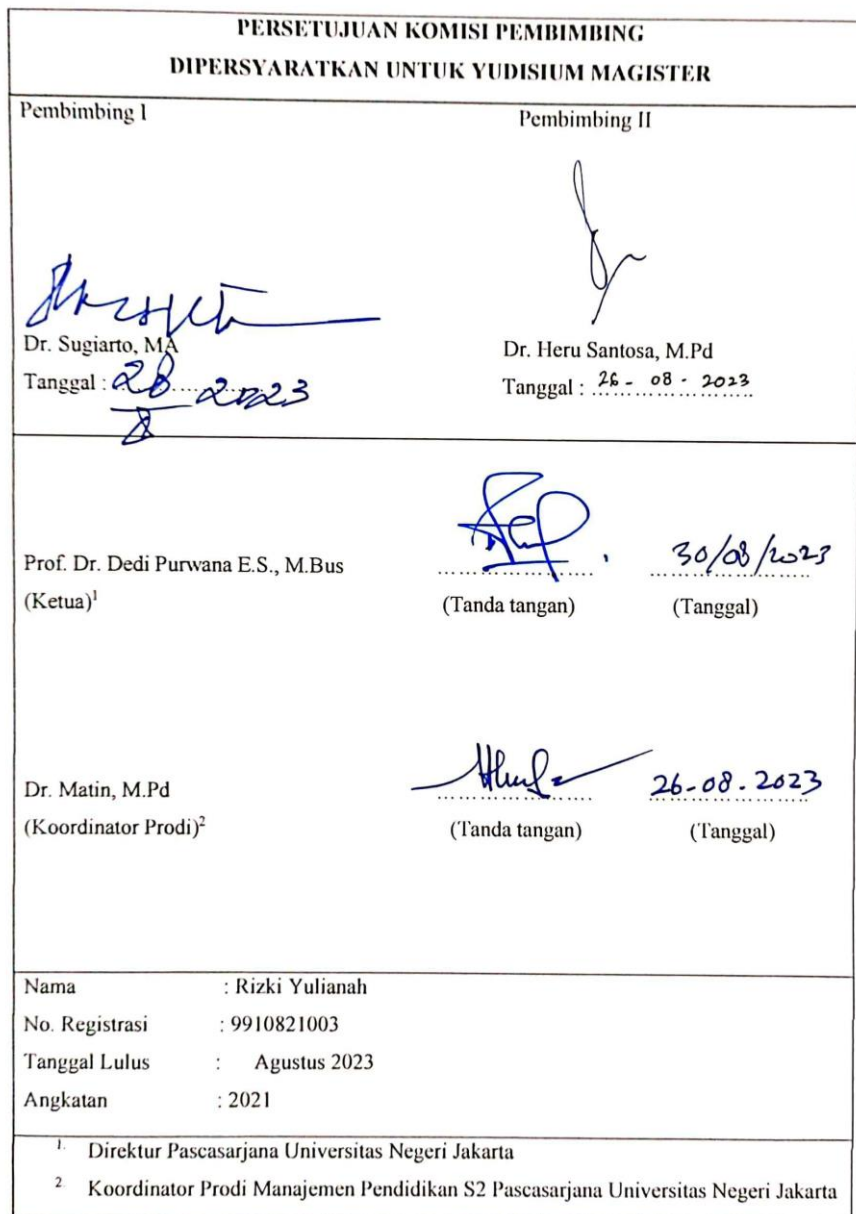 PERSETUJUAN KOMISI PEMBIMBING
DIPERSYARATKAN UNTUK YUDISIUM MAGISTER
Pembimbing I
Pembimbing II
Dr. Sugiarto, MA
Tanggal : 28/8 2023
Dr. Heru Santosa, M.Pd
Tanggal : 26 - 08 - 2023
Prof. Dr. Dedi Purwana E.S., M.Bus
30/08/2023
(Ketua)¹
(Tanda tangan)
(Tanggal)
Dr. Matin, M.Pd
26-08-2023
(Koordinator Prodi)²
(Tanda tangan)
(Tanggal)
Nama : Rizki Yulianah
No. Registrasi : 9910821003
Tanggal Lulus : Agustus 2023
Angkatan : 2021
1. Direktur Pascasarjana Universitas Negeri Jakarta
2 Koordinator Prodi Manajemen Pendidikan S2 Pascasarjana Universitas Negeri Jakarta